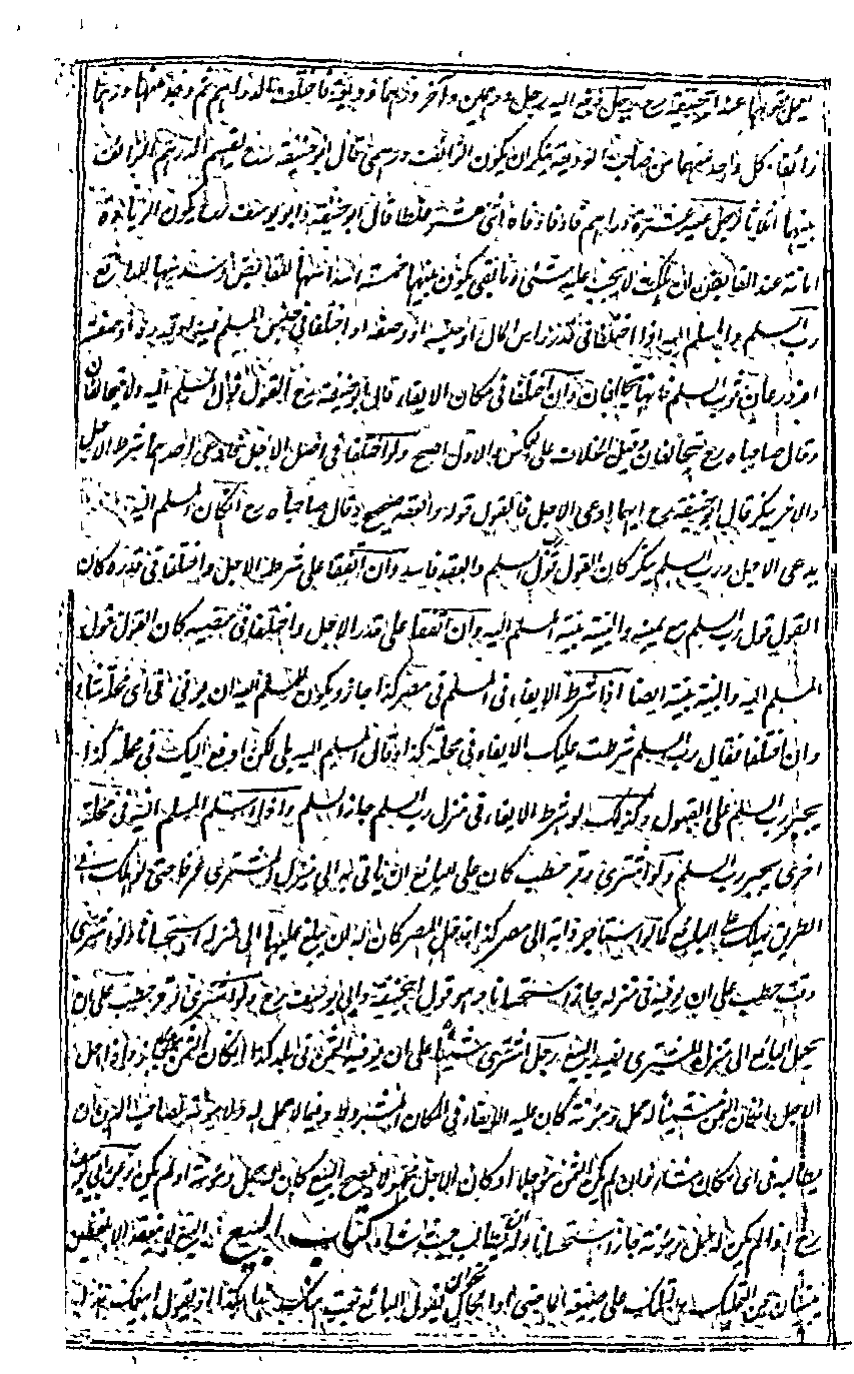 رجل دفع اليه رجل درهمين وآخر درهما وديعة فاختلفت الدراهم ثم وجد منها درهما
زائفا كل واحد منهما من صاحب الوديعة ينكر ان يكون الزائف درهمى قال ابو حنيفة رح يقسم الدرهم الزائف
بينهما اثلاثا رجل عليه عشرة دراهم فاوفاه اثنى عشر غلطا قال ابو حنيفة وابو يوسف يكون الزيادة
امانة عند القابض ان هلكت لا يجب عليه شئ وما بقى يكون بينهما خمسة اسداسها للقابض وسدسها للدافع
رب السلم والمسلم اليه اذا اختلفا فى قدر راس المال او جنسه او وصفه او اختلفا فى جنس المسلم فيه او قدره او صفته
او ذرعان ثوب السلم فانهما يتحالفان وان اختلفا فى مكان الايفاء قال ابو حنيفة رح القول قول المسلم اليه ولا يتحالفان
وقال صاحباه رح يتحالفان وقيل الخلاف على العكس والاول اصح ولو اختلفا فى اصل الاجل فادعى احدهما شرط الاجل
والاخر ينكر قال ابو حنيفة رح ايهما ادعى الاجل فالقول قوله والعقد صحيح وقال صاحباه رح ان كان المسلم اليه
يدعى الاجل ورب السلم ينكر كان القول قول رب السلم والعقد فاسد وان اتفقا على شرط الاجل واختلفا فى قدره كان
القول قول رب السلم مع يمينه والبينة بينة المسلم اليه وان اتفقا على قدر الاجل واختلفا فى مضيه كان القول قول
المسلم اليه والبينة بينته ايضا اذا شرط الايفاء فى المسلم فى مصر كذا جاز ويكون للمسلم اليه ان يوفى فى اى محلة شاء
وان اختلفا فقال رب السلم شرطت عليك الايفاء فى محلة كذا وقال المسلم اليه بلى لكن ادفع اليك فى محلة كذا
يجبر رب السلم على القبول وكذلك لو شرط الايفاء فى منزل رب السلم جاز السلم واذا سلم المسلم اليه فى محلة
اخرى يجبر رب السلم ولو اشترى وقر حطب كان على البائع ان ياتى به الى منزل المشترى عرفا حتى لو هلك فى
الطريق يهلك على البائع كما لو استاجر دابة الى مصر كذا فدخل المصر كان له ان يبلغ عليها الى منزله استحسانا ولو اشترى
وقر حطب على ان يوفيه فى منزله جاز استحسانا وهو قول ابى حنيفة وابى يوسف رح ولو اشترى وقر حطب على ان
يحمل البائع الى منزل المشترى يفسد البيع رجل اشترى شيئا على ان يوفيه الثمن فى بلد كذا ان كان الثمن مؤجلا جاز واذا حل
الاجل وان كان الثمن شيئا له حمل ومؤنة كان عليه الايفاء فى المكان المشروط وفيما لا حمل له ولا مؤنة لصاحب الدين ان
يطالبه فى اى مكان شاء وان لم يكن الثمن مؤجلا او كان الاجل مجهولا لا يصح البيع كان له حمل ومؤنة او لم يكن وعن ابى يوسف
رح اذا لم يكن له حمل ومؤنة جاز استحسانا وله ان يطالب حيث شاء كتاب البيع ان البيع لا ينعقد الا بلفظين
ينبئان عن التمليك والتملك على صيغة الماضى او الحال نحو ان يقول البائع بعت منك هذا بكذا او يقول ابيعك